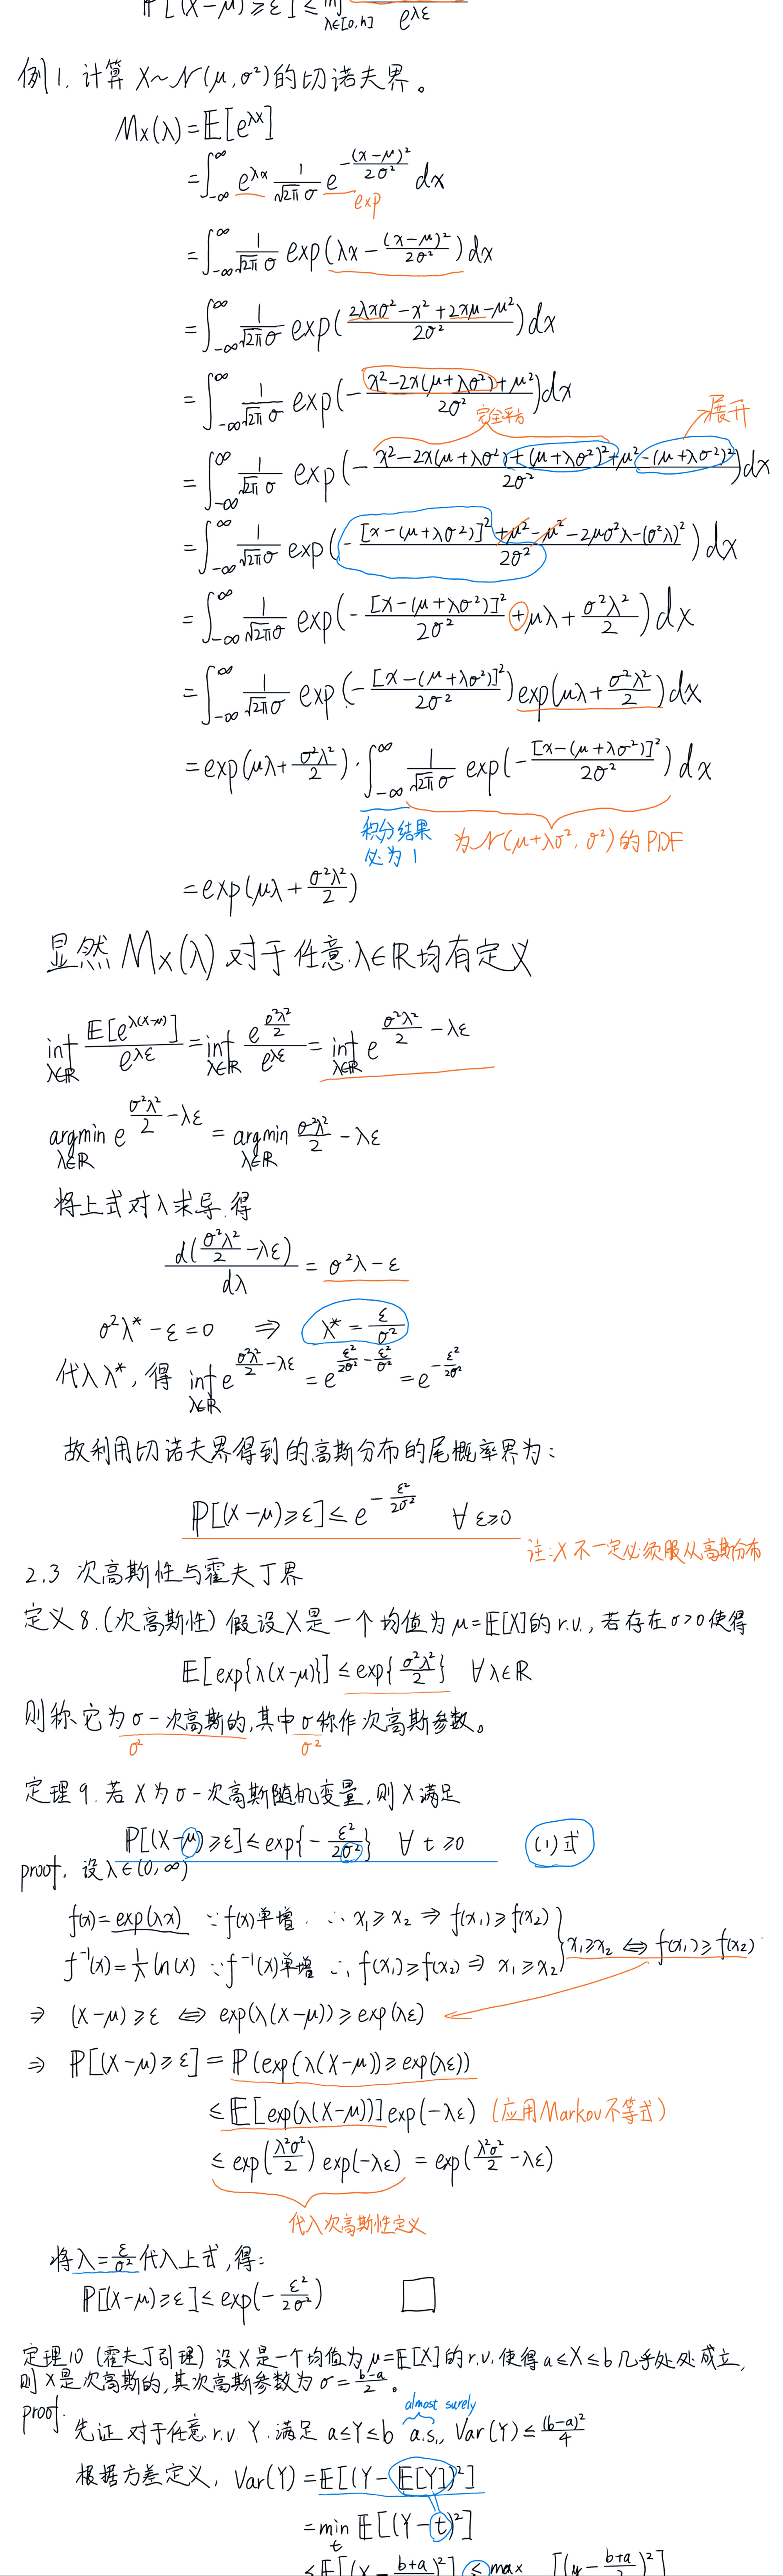 P[(X-μ)≥ε] ≤ inf_{λ∈[0,h]} e^{λε}
例1. 计算 X~N(μ,σ²)的切诺夫界。
Mx(λ) = E[e^{λx}]
= ∫_{-∞}^{∞} e^{λx} 1/(√2π σ) e^{-(x-μ)²/2σ²} dx
exp
= ∫_{-∞}^{∞} 1/(√2π σ) exp(λx - (x-μ)²/2σ²) dx
= ∫_{-∞}^{∞} 1/(√2π σ) exp((2λxσ² - x² + 2xμ - μ²)/2σ²) dx
= ∫_{-∞}^{∞} 1/(√2π σ) exp(-(x² - 2x(μ+λσ²) + μ²)/2σ²) dx
完全平方 展开
= ∫_{-∞}^{∞} 1/(√2π σ) exp(-(x² - 2x(μ+λσ²) + (μ+λσ²)² + μ² - (μ+λσ²)²)/2σ²) dx
= ∫_{-∞}^{∞} 1/(√2π σ) exp(-([x-(μ+λσ²)]² + μ² - μ² - 2μσ²λ - (σ²λ)²)/2σ²) dx
= ∫_{-∞}^{∞} 1/(√2π σ) exp(-[x-(μ+λσ²)]²/2σ² + μλ + σ²λ²/2) dx
= ∫_{-∞}^{∞} 1/(√2π σ) exp(-[x-(μ+λσ²)]²/2σ²) exp(μλ + σ²λ²/2) dx
= exp(μλ + σ²λ²/2) · ∫_{-∞}^{∞} 1/(√2π σ) exp(-[x-(μ+λσ²)]²/2σ²) dx
积分结果 为N(μ+λσ², σ²)的PDF
必为1
= exp(μλ + σ²λ²/2)
显然 Mx(λ) 对于任意 λ∈R 均有定义
inf_{λ∈R} E[e^{λ(X-μ)}]/e^{λε} = inf_{λ∈R} e^{σ²λ²/2}/e^{λε} = inf_{λ∈R} e^{σ²λ²/2 - λε}
argmin_{λ∈R} e^{σ²λ²/2 - λε} = argmin_{λ∈R} σ²λ²/2 - λε
将上式对λ求导,得
d(σ²λ²/2 - λε)/dλ = σ²λ - ε
σ²λ* - ε = 0 ⇒ λ* = ε/σ²
代入λ*, 得 inf_{λ∈R} e^{σ²λ²/2 - λε} = e^{ε²/2σ² - ε²/σ²} = e^{-ε²/2σ²}
故利用切诺夫界得到的高斯分布的尾概率界为:
P[(X-μ)≥ε] ≤ e^{-ε²/2σ²} ∀ε≥0
注:X不一定必须服从高斯分布
2.3 次高斯性与霍夫丁界
定义8.(次高斯性) 假设X是一个均值为μ=E[X]的r.v., 若存在σ>0使得
E[exp{λ(X-μ)}] ≤ exp{σ²λ²/2} ∀λ∈R
则称它为σ-次高斯的,其中σ称作次高斯参数。
σ² σ²
定理9. 若X为σ-次高斯随机变量,则X满足
P[(X-μ)≥ε] ≤ exp{-ε²/2σ²} ∀t≥0 (1)式
proof. 设λ∈(0,∞)
f(x)=exp(λx) ∵f(x)单增. ∴x₁≥x₂ ⇒ f(x₁)≥f(x₂)
f⁻¹(x)=1/λ ln(x) ∵f⁻¹(x)单增 ∴f(x₁)≥f(x₂) ⇒ x₁≥x₂ } x₁≥x₂ ⇔ f(x₁)≥f(x₂)
⇒ (X-μ)≥ε ⇔ exp(λ(X-μ))≥exp(λε)
⇒ P[(X-μ)≥ε] = P(exp(λ(X-μ))≥exp(λε))
≤ E[exp(λ(X-μ))]exp(-λε) (应用Markov不等式)
≤ exp(λ²σ²/2) exp(-λε) = exp(λ²σ²/2 - λε)
代入次高斯性定义
将λ=ε/σ²代入上式,得:
P[(X-μ)≥ε] ≤ exp(-ε²/2σ²) □
定理10 (霍夫丁引理) 设X是一个均值为μ=E[X]的r.v.使得a≤X≤b几乎处处成立,
则X是次高斯的,其次高斯参数为σ=(b-a)/2。
almost surely
proof. 先证 对于任意r.v. Y.满足 a≤Y≤b a.s., Var(Y) ≤ (b-a)²/4
根据方差定义, Var(Y) = E[(Y-E[Y])²]
= min_t E[(Y-t)²]